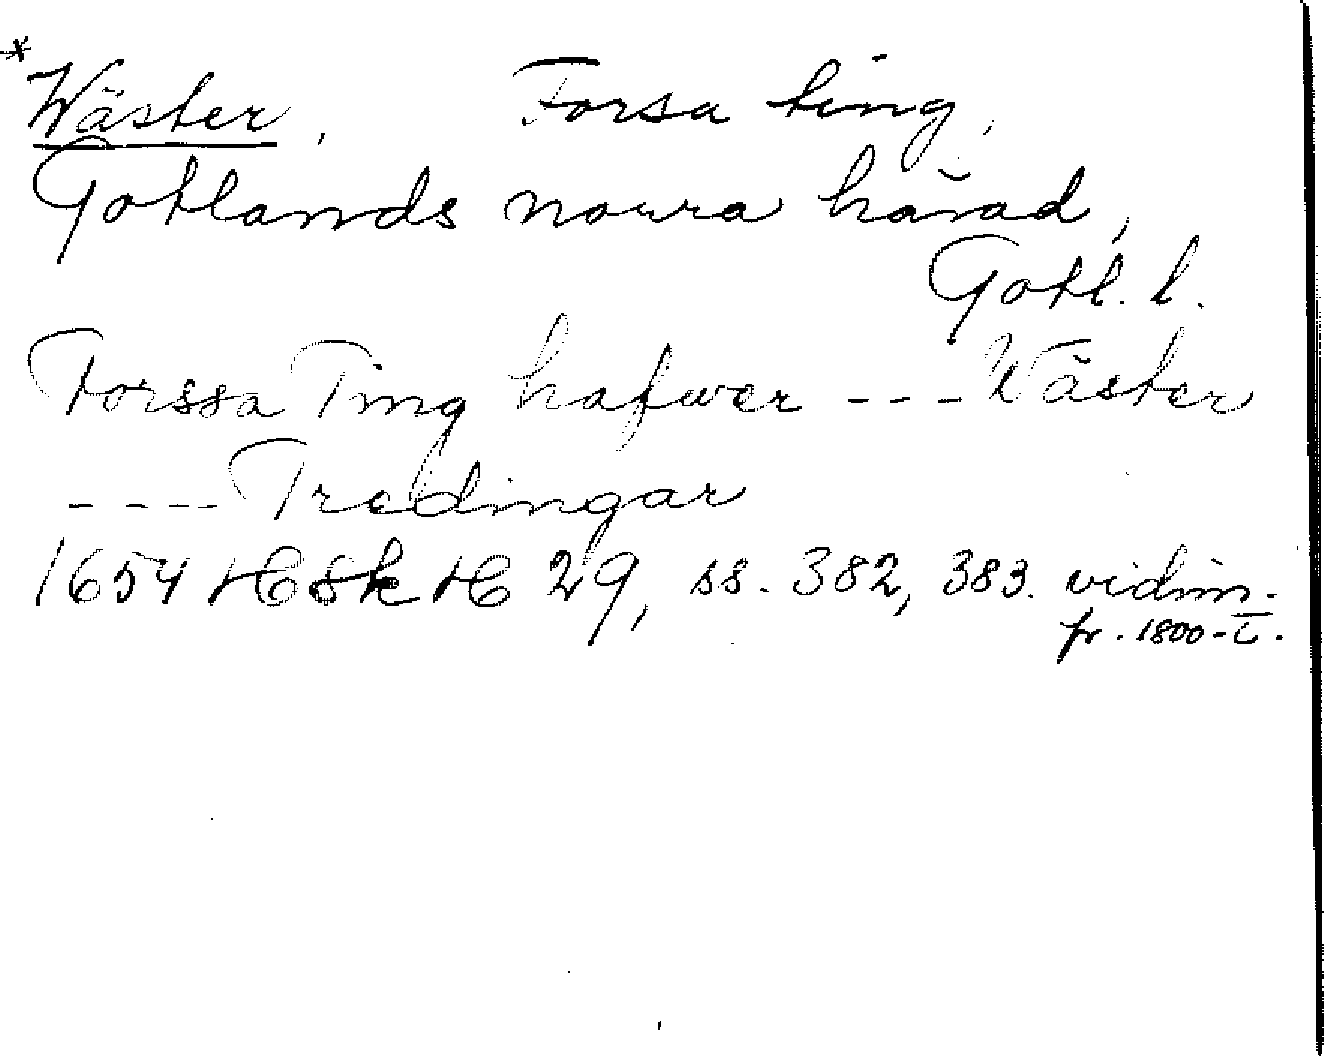 *
Wäster, Forsa ting,
Gotlands norra härad,
Gotl. l.
Forssa Ting hafwer --- Wäster
---- Tredingar
1654 HSkH 29, ss. 382, 383. vidim.
fr. 1800-t.